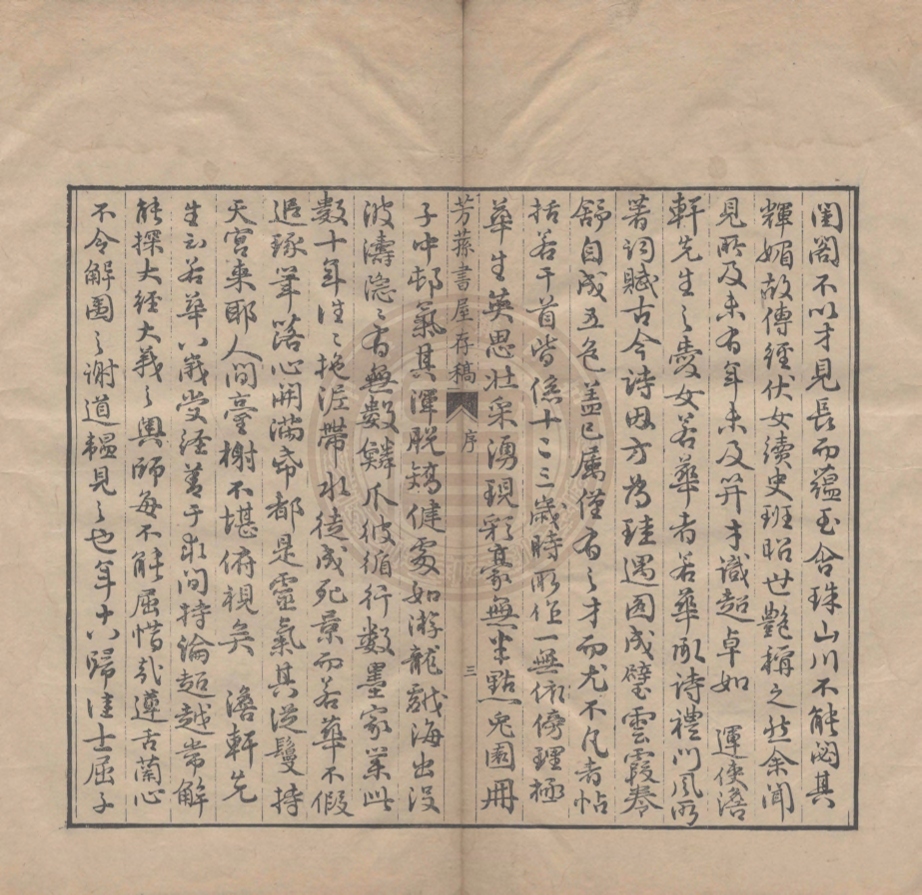 閨閤不以才見長而蘊玉含珠山川不能閟其
輝媚故傳經伏女續史班昭世艷稱之然余聞
見所及未有年未及笄才識超卓如 運使澹
軒先生之愛女若華者若華承詩禮門風所
著詞賦古今詩因方為珪遇圓成璧雲霞卷
舒自成五色蓋已屬僅有之才而尤不凡者帖
括若干首皆係十二三歲時所作一無依傍理極
華生英思壯采湧現彩豪無半點兔園冊
芳蓀書屋存稿 序 三
子中邨氣其渾脫矯健處如游龍戲海出沒
波濤隱隱有無數鱗爪彼循行數墨家業此
數十年往往拖泥帶水徒成死景而若華不假
追琢筆落心開滿帋都是靈氣其從鬘持
天宮來耶人間臺榭不堪俯視矣 澹軒先
生言若華八歲受經善于求間持論超越常解
能探大經大義之奧師每不能屈惜哉遵舌蘭心
不令解圍之謝道韞見之也年十八歸佳士屈子